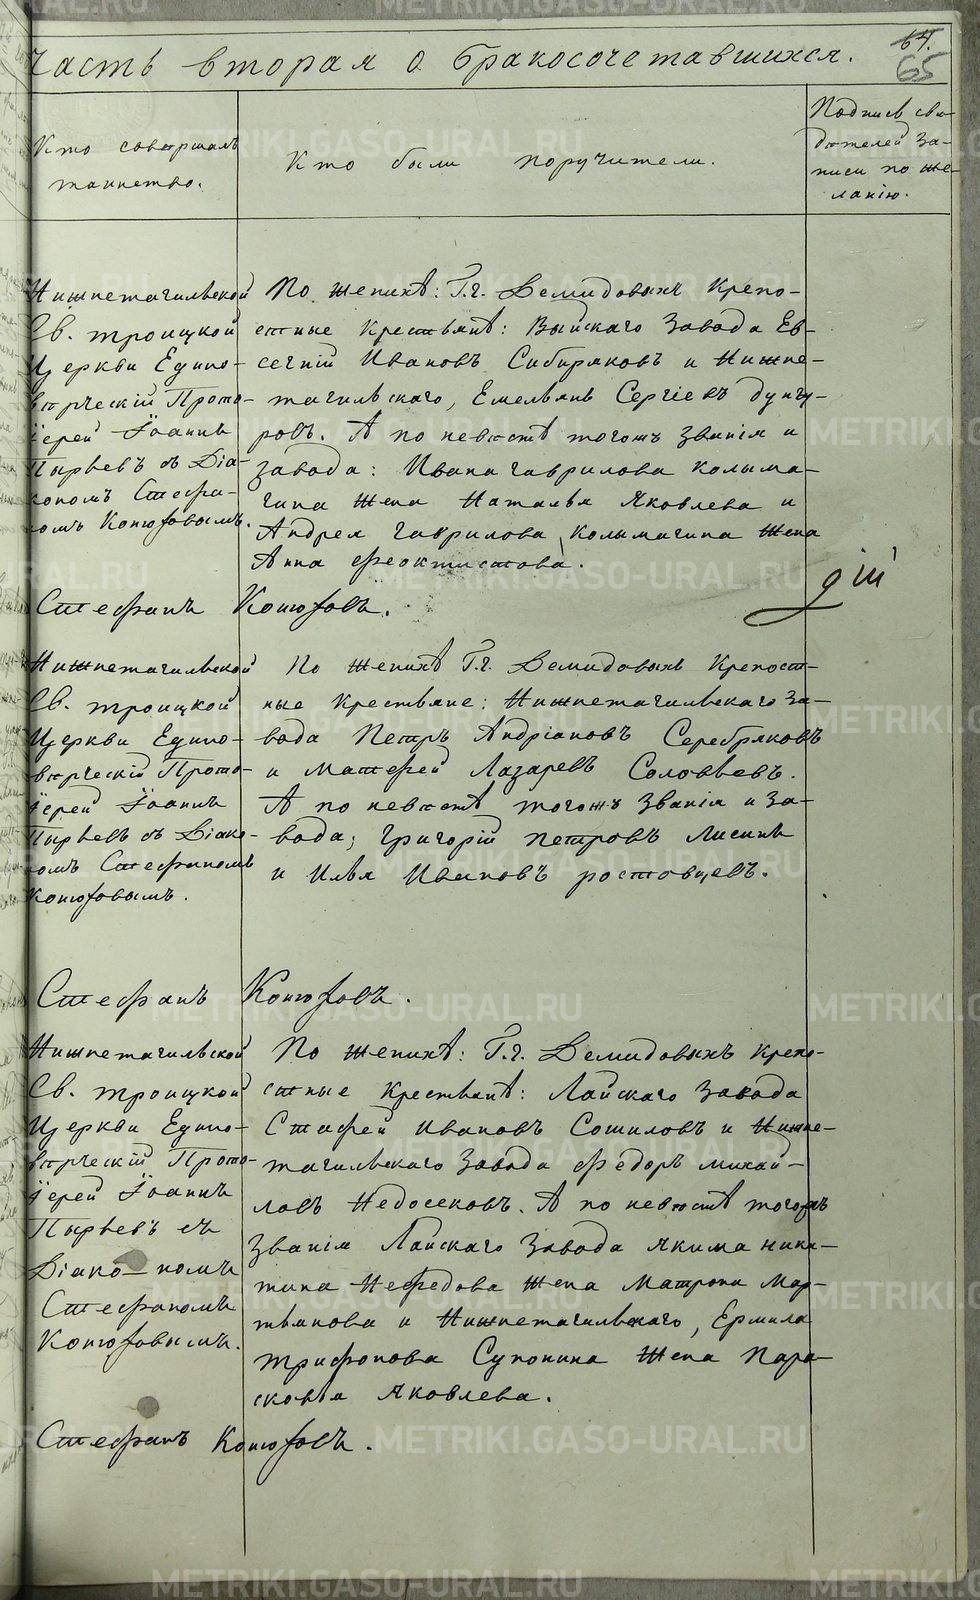 64.
65
Часть вторая о бракосочетавшихся.
Кто совершалъ
таинство.
Кто были поручители.
Подпись сви-
дѣтелей за-
писи по же-
ланію.
Нижнетагильской
Св. Троицкой
Церкви Едино-
вѣрческій Прото-
іерей Іоаннъ
Пырьевъ съ Діа-
кономъ Стефа-
номъ Конюховымъ.
По женихѣ: Г.г. Демидовыхъ Крепо-
стные Крестьянѣ: Выйскаго Завода Ев-
сегній Ивановъ Сибиряковъ и Нижне-
тагильскаго, Емельянъ Сергіевъ
А по невѣстѣ тогожъ Званія и
завода: Ивана Гаврилова Колыма-
гина Жена Наталья Яковлева и
Андрея Гаврилова Колымагина Жена
Анна Феоктистова.
Стефанъ Конюховъ.
Нижнетагильской
Св. Троицкой
Церкви Едино-
вѣрческій Прото-
іерей Іоаннъ
Пырьевъ съ Діако-
номъ Стефаномъ
Конюховымъ.
По женихѣ Г.г. Демидовыхъ Крепост-
ные Крестьяне: Нижнетагильскаго За-
вода Петръ Андріановъ Серебряковъ
и Матфей Лазаревъ Соловьевъ.
А по невѣстѣ тогожъ Званія и За-
вода; Григорій Петровъ Лисинъ
и Илья Ивановъ Ростовцевъ.
Стефанъ Конюховъ.
Нижнетагильской
Св. Троицкой
Церкви Едино-
вѣрческій Прото-
іерей Іоаннъ
Пырьевъ съ
Діако-номъ
Стефаномъ
Конюховымъ.
По женихѣ: Г.г. Демидовыхъ Крепо-
стные Крестьянѣ: Лайскаго Завода
Стафей Ивановъ Сошиловъ и Нижне-
тагильскаго Завода Федоръ Михай-
ловъ Недосековъ. А по невѣстѣ тогожъ
Званія Лайскаго Завода Якима Ники-
тина Нефедова Жена Матрона Мар-
тьянова и Нижнетагильскаго, Ермила
Трифонова Супонина Жена Пара-
сковья Яковлева.
Стефанъ Конюховъ.
METRIKI.GASO-URAL.RU